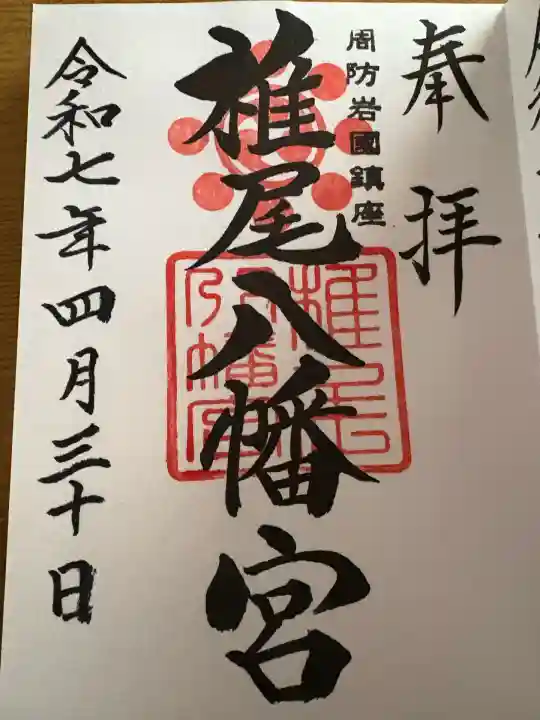 奉拝
周防岩國鎮座
椎尾八幡宮
令和七年四月三十日
椎尾
八幡宮